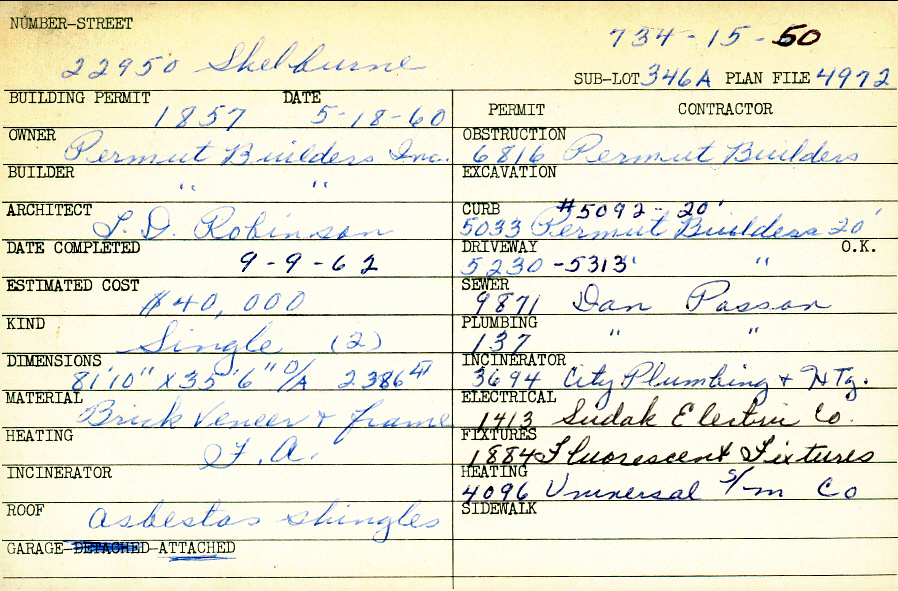 NUMBER-STREET
734-15-50
22950 Shelburne
SUB-LOT 346A PLAN FILE 4972
BUILDING PERMIT DATE
1857 5-18-60
OWNER
Permut Builders Inc.
BUILDER
" "
ARCHITECT
L. D. Robinson
DATE COMPLETED
9-9-62
ESTIMATED COST
$40,000
KIND
Single (2)
DIMENSIONS
81'10" x 35'6" O/A 2386
MATERIAL
Brick Veneer & frame
HEATING
F.A.
INCINERATOR
ROOF
asbestos shingles
GARAGE-DETACHED-ATTACHED
PERMIT CONTRACTOR
OBSTRUCTION
6816 Permut Builders
EXCAVATION
CURB #5092 - 20'
5033 Permut Builders 20'
DRIVEWAY O.K.
5230 -5313 " "
SEWER
9871 Dan Passon
PLUMBING
137 " "
INCINERATOR
3694 City Plumbing & HTg.
ELECTRICAL
1413 Sudak Electric Co.
FIXTURES
1884 Fluorescent Fixtures
HEATING
4096 Universal S/m Co
SIDEWALK